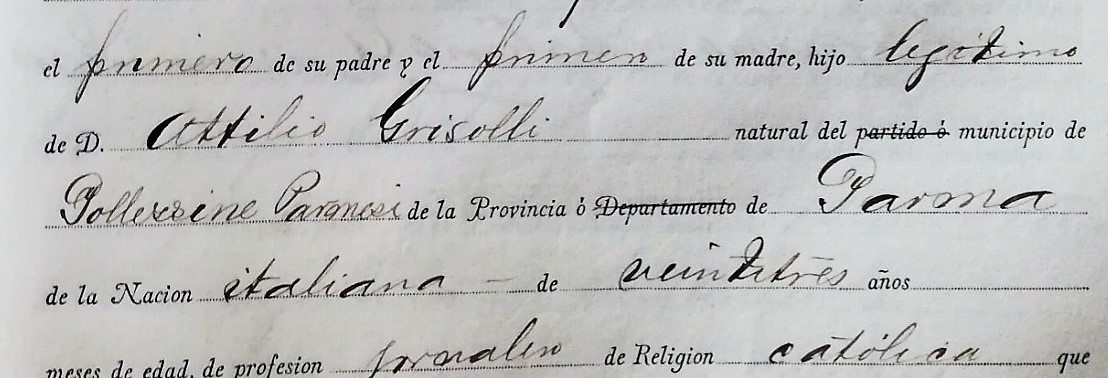 el primero de su padre y el primero de su madre, hijo legítimo
de D. Attilio Grisolli natural del partido ó municipio de
Pollezzine Parmesi de la Provincia ó Departamento de Parma
de la Nacion italiana - de veintitrés años
meses de edad, de profesion jornalero de Religion católica que